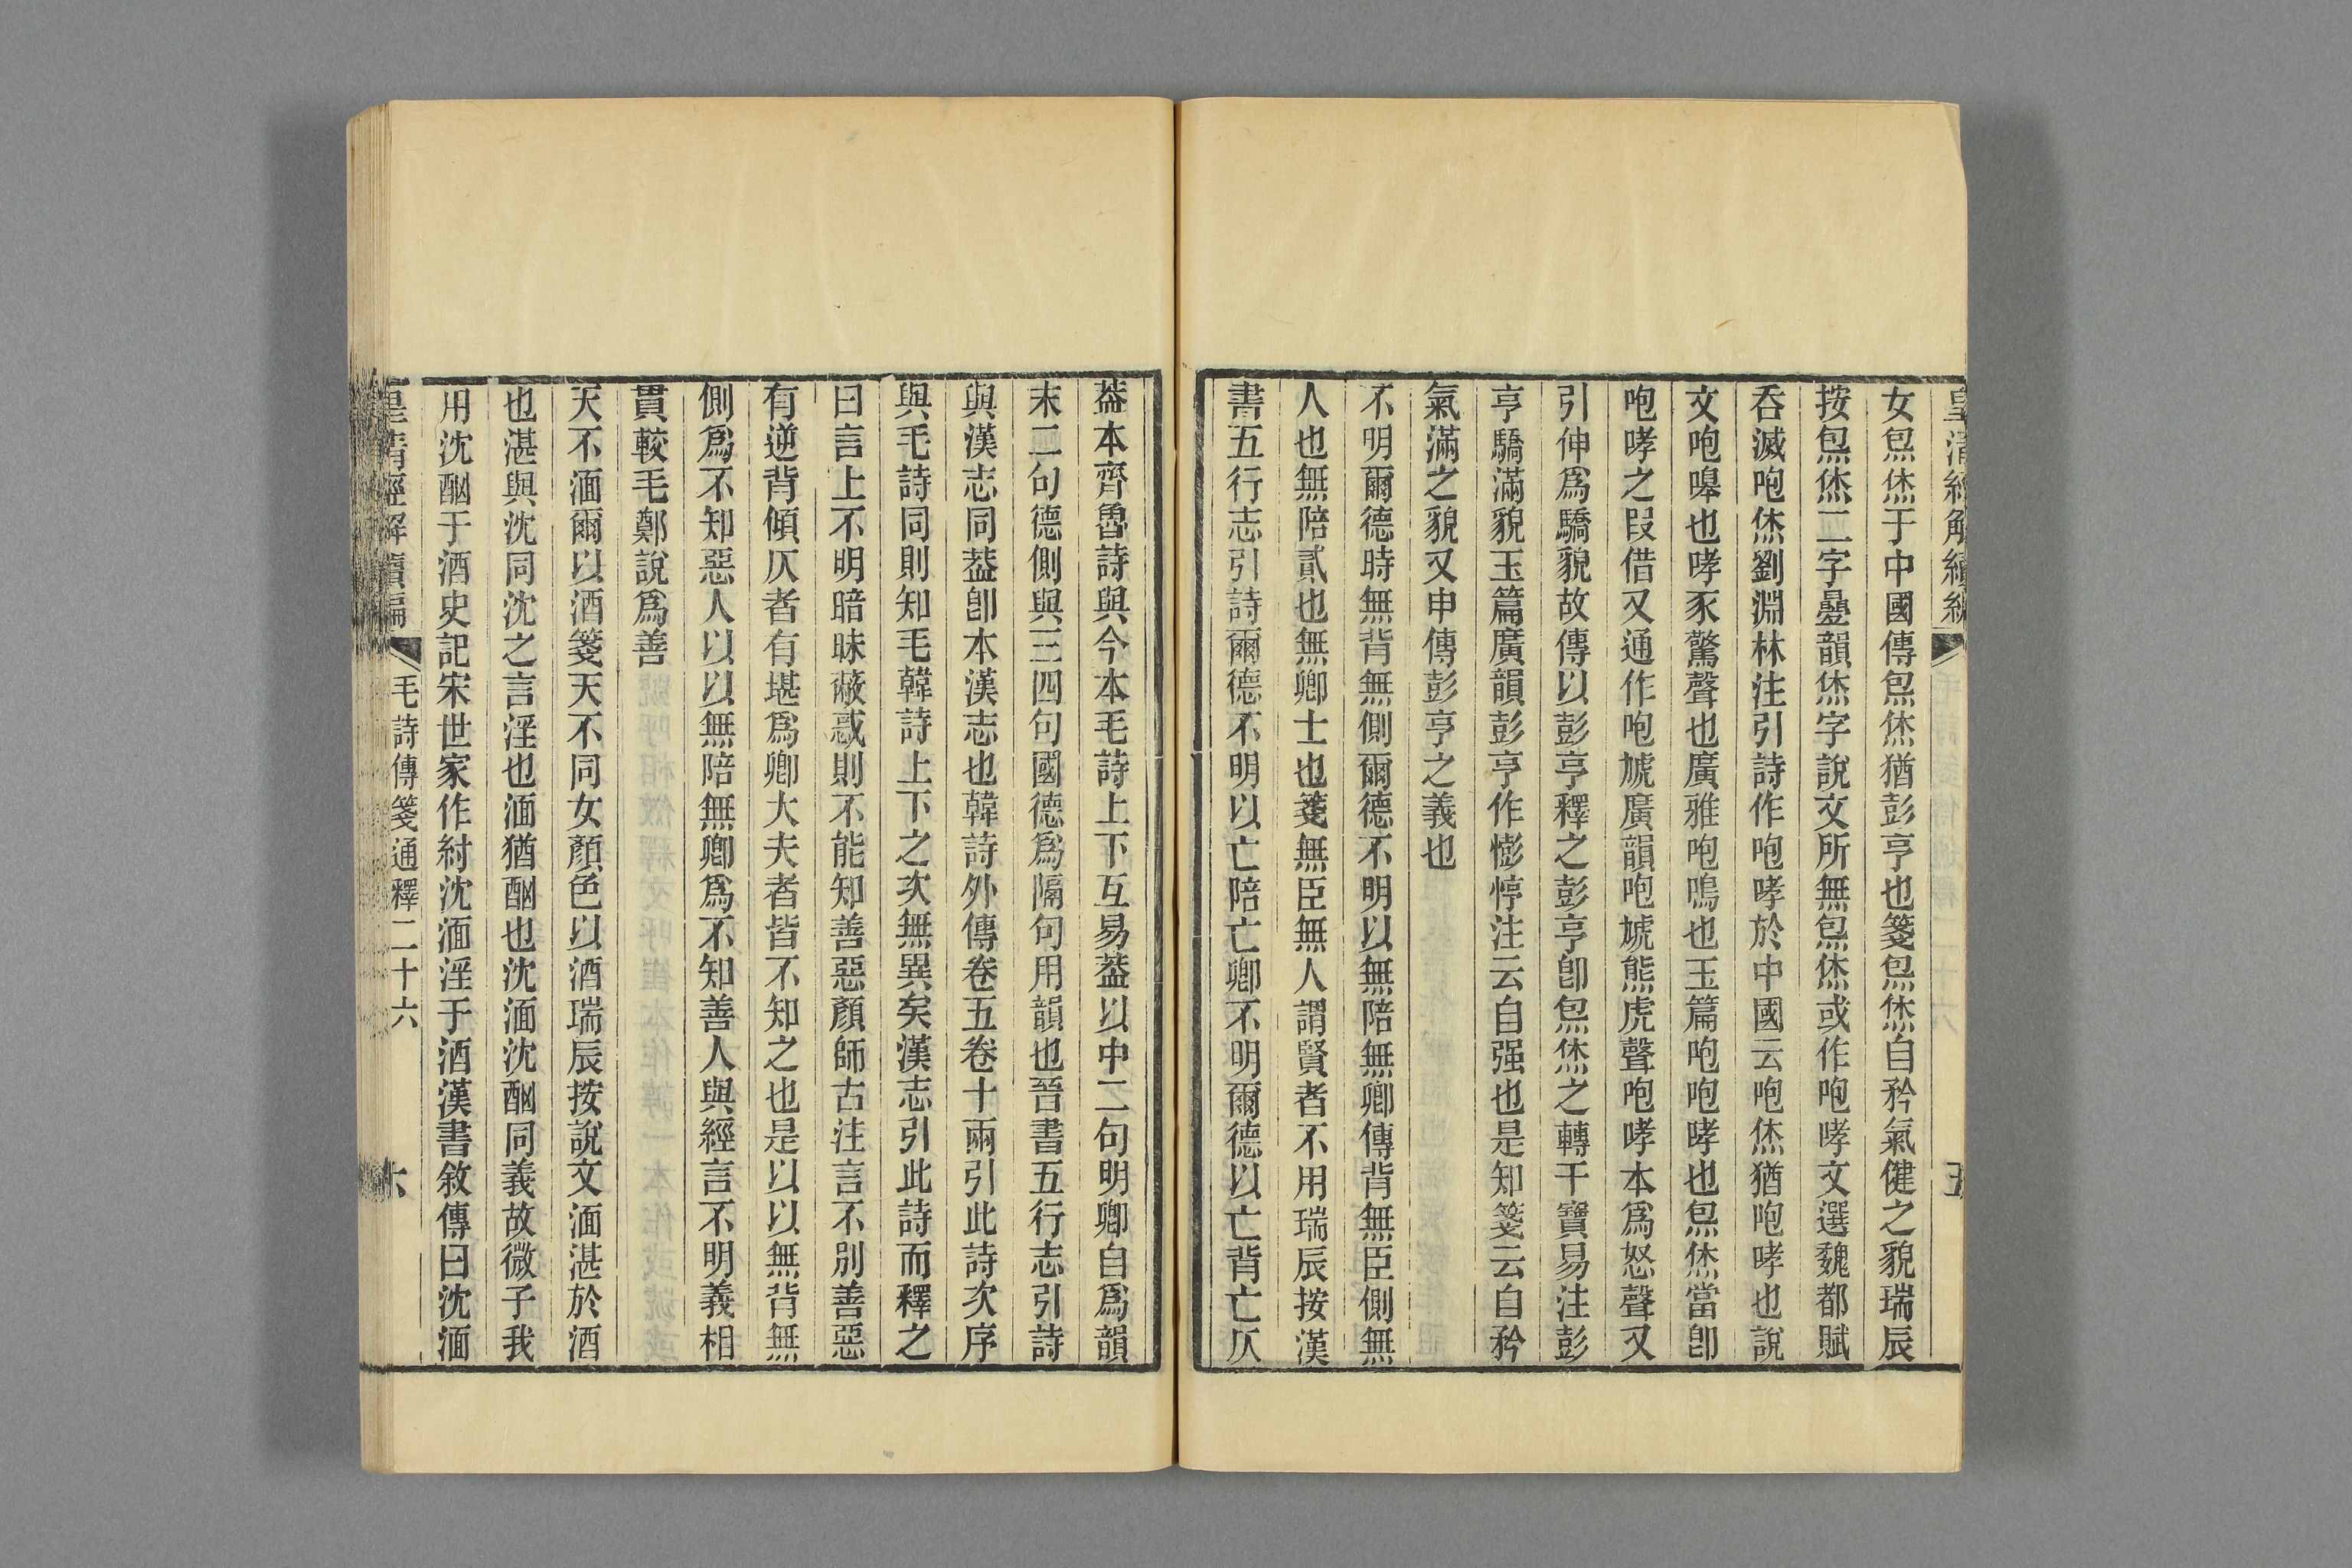 皇清經解續編
五
女炰烋于中國傳炰烋猶彭亨也箋炰烋自矜氣健之貌瑞辰
按炰烋二字曡韻烋字說文所無炰烋或作咆哮文選魏都賦
吞滅咆烋劉淵林注引詩作咆哮於中國云咆烋猶咆哮也說
文咆嘷也哮豕驚聲也廣雅咆鳴也玉篇咆咆哮也炰烋當卽
咆哮之叚借又通作咆虓廣韻咆虓熊虎聲咆哮本爲怒聲又
引伸爲驕貌故傳以彭亨釋之彭亨卽炰烋之轉干寶易注彭
亨驕滿貌玉篇廣韻彭亨作憉悙注云自强也是知箋云自矜
氣滿之貌又申傳彭亨之義也
不明爾德時無背無側爾德不明以無陪無卿傳背無臣側無
人也無陪貳也無卿士也箋無臣無人謂賢者不用瑞辰按漢
書五行志引詩爾德不明以亡陪亡卿不明爾德以亡背亡仄
葢本齊魯詩與今本毛詩上下互易葢以中二句明卿自爲韻
末二句德側與三四句國德爲隔句用韻也晉書五行志引詩
與漢志同葢卽本漢志也韓詩外傳卷五卷十兩引此詩次序
與毛詩同則知毛韓詩上下之次無異矣漢志引此詩而釋之
曰言上不明暗昧蔽惑則不能知善惡顏師古注言不別善惡
有逆背傾仄者有堪爲卿大夫者皆不知之也是以以無背無
側爲不知惡人以以無陪無卿爲不知善人與經言不明義相
貫較毛鄭說爲善
天不湎爾以酒箋天不同女顏色以酒瑞辰按說文湎湛於酒
也湛與沈同沈之言淫也湎猶酗也沈湎沈酗同義故微子我
用沈酗于酒史記宋世家作紂沈湎淫于酒漢書敘傳曰沈湎
皇清經解續編
毛詩傳箋通釋二十六
六